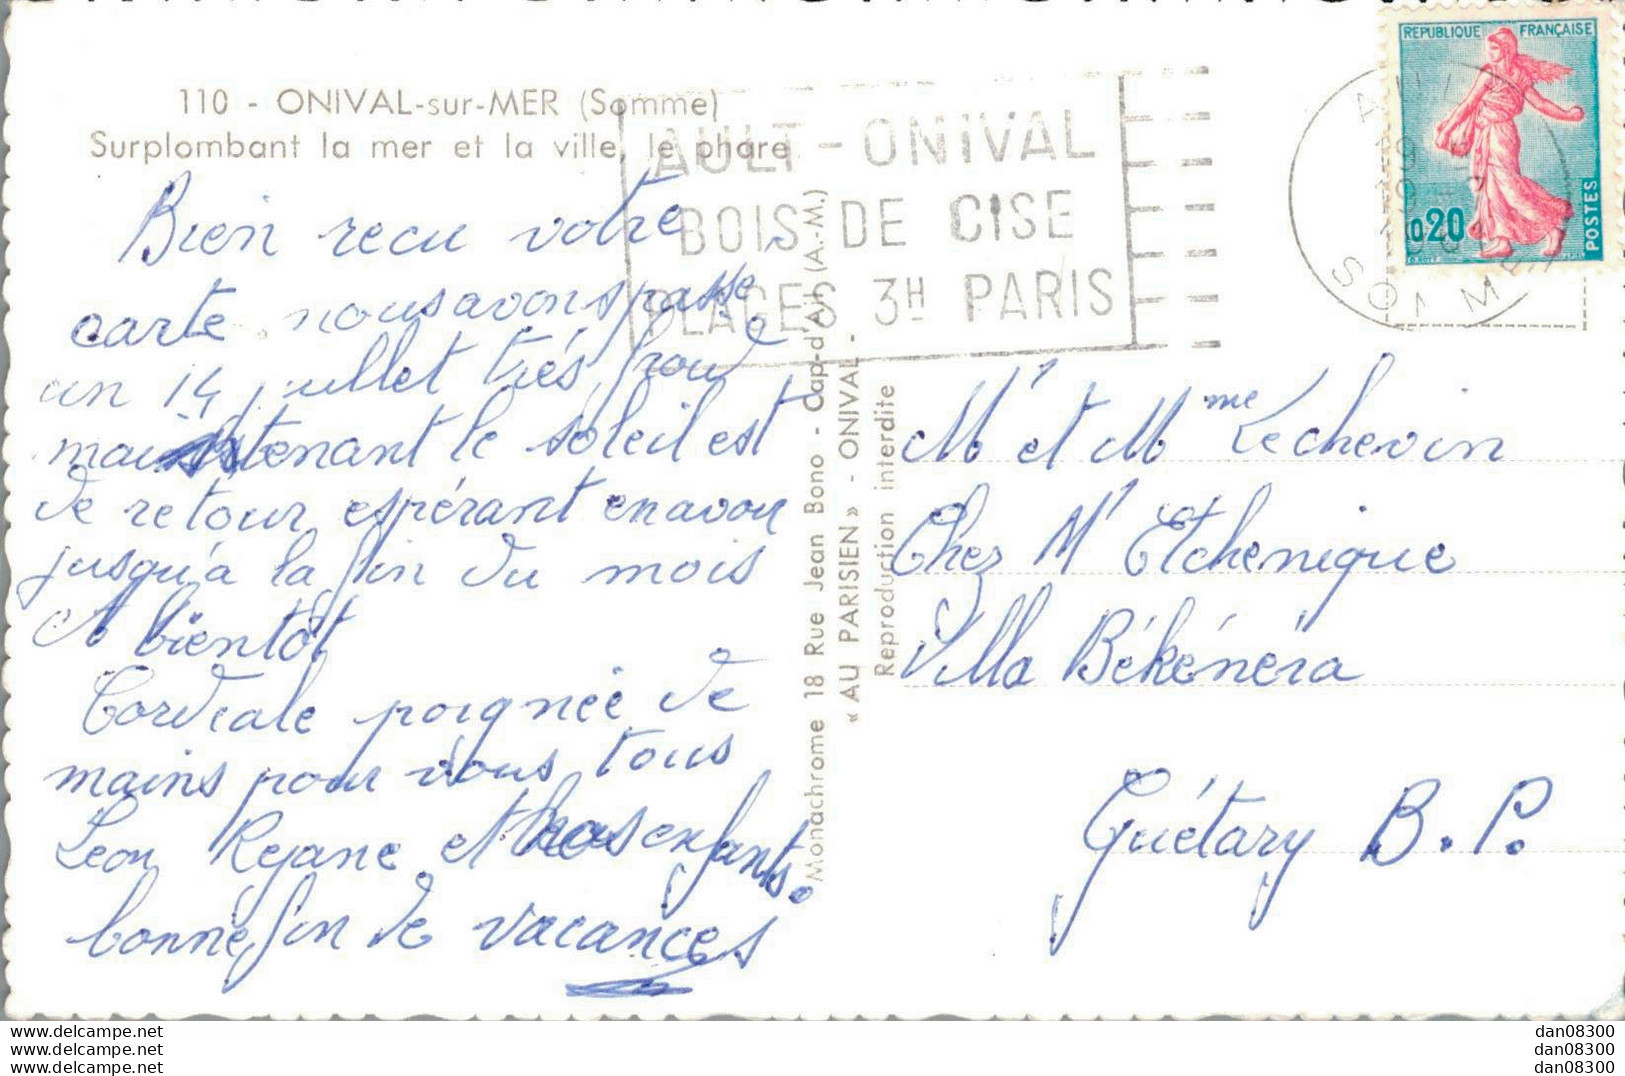 110 - ONIVAL-sur-MER (Somme)
Surplombant la mer et la ville, le phare
Bien recu votre
carte, nous avons passe
un 14 juillet triés froid
maintenant le soleil est
de retour espérant en avoir
jusqu'à la fin du mois
A bientôt
Cordiale poignée de
mains pour vous tous
Leon Rejane et nos enfants.
bonne fin de vacances
AULT - ONIVAL
BOIS DE CISE
PLAGES 3H PARIS
Monachrome 18 Rue Jean Bono - Cap-d'Ail (A.-M.)
« AU PARISIEN » - ONIVAL -
Reproduction interdite
REPUBLIQUE FRANÇAISE
0,20
POSTES
SOMME
Mr et Mme Lechevin
Chez Mr Etchenique
Villa Békénéra
Guétary B.P.
www.delcampe.net
www.delcampe.net
www.delcampe.net
dan08300
dan08300
dan08300